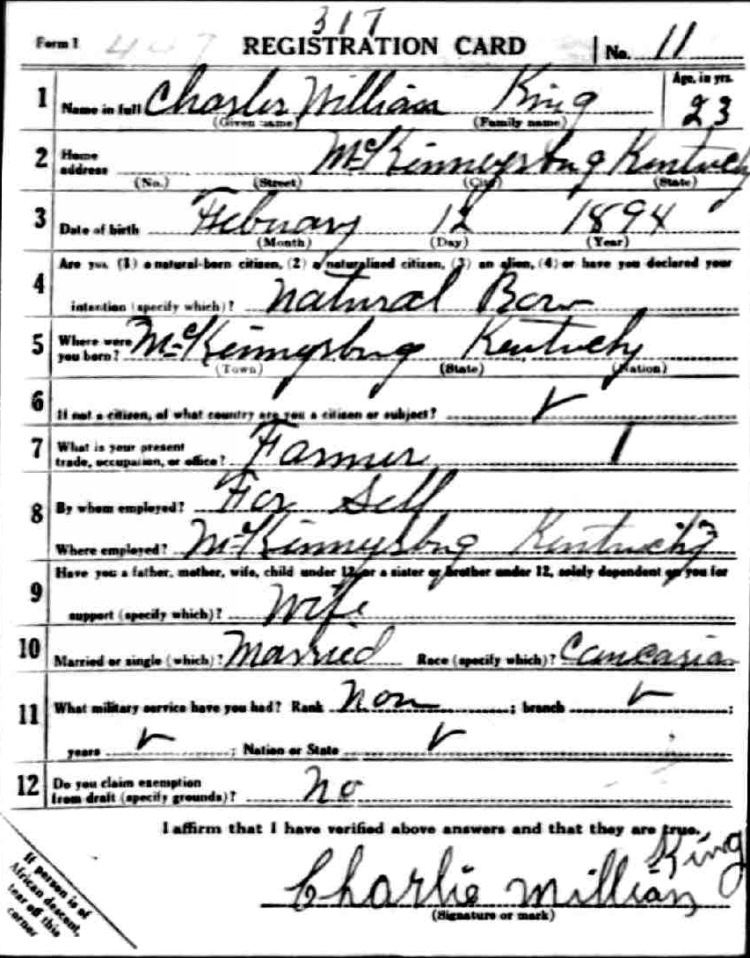 317
Form 1 407 REGISTRATION CARD No. 11
1 Name in full Charles William King Age, in yrs. 23
(Given name) (Family name)
2 Home address McKinneysburg Kentucky
(No.) (Street) (City) (State)
3 Date of birth Febuary 12 1894
(Month) (Day) (Year)
4 Are you (1) a natural-born citizen, (2) a naturalized citizen, (3) an alien, (4) or have you declared your
intention (specify which)? Natural Born
5 Where were you born? McKinneysburg Kentucky
(Town) (State) (Nation)
6 If not a citizen, of what country are you a citizen or subject? ✓
7 What is your present trade, occupation, or office? Farmer 1
8 By whom employed? For Self
Where employed? McKinneysburg Kentucky
9 Have you a father, mother, wife, child under 12, or a sister or brother under 12, solely dependent on you for
support (specify which)? Wife
10 Married or single (which)? Married Race (specify which)? Caucasian
11 What military service have you had? Rank non ; branch ✓ ;
years ✓ ; Nation or State ✓
12 Do you claim exemption from draft (specify grounds)? No
I affirm that I have verified above answers and that they are true.
Charlie William King
(Signature or mark)
If person is of
African descent,
tear off this
corner